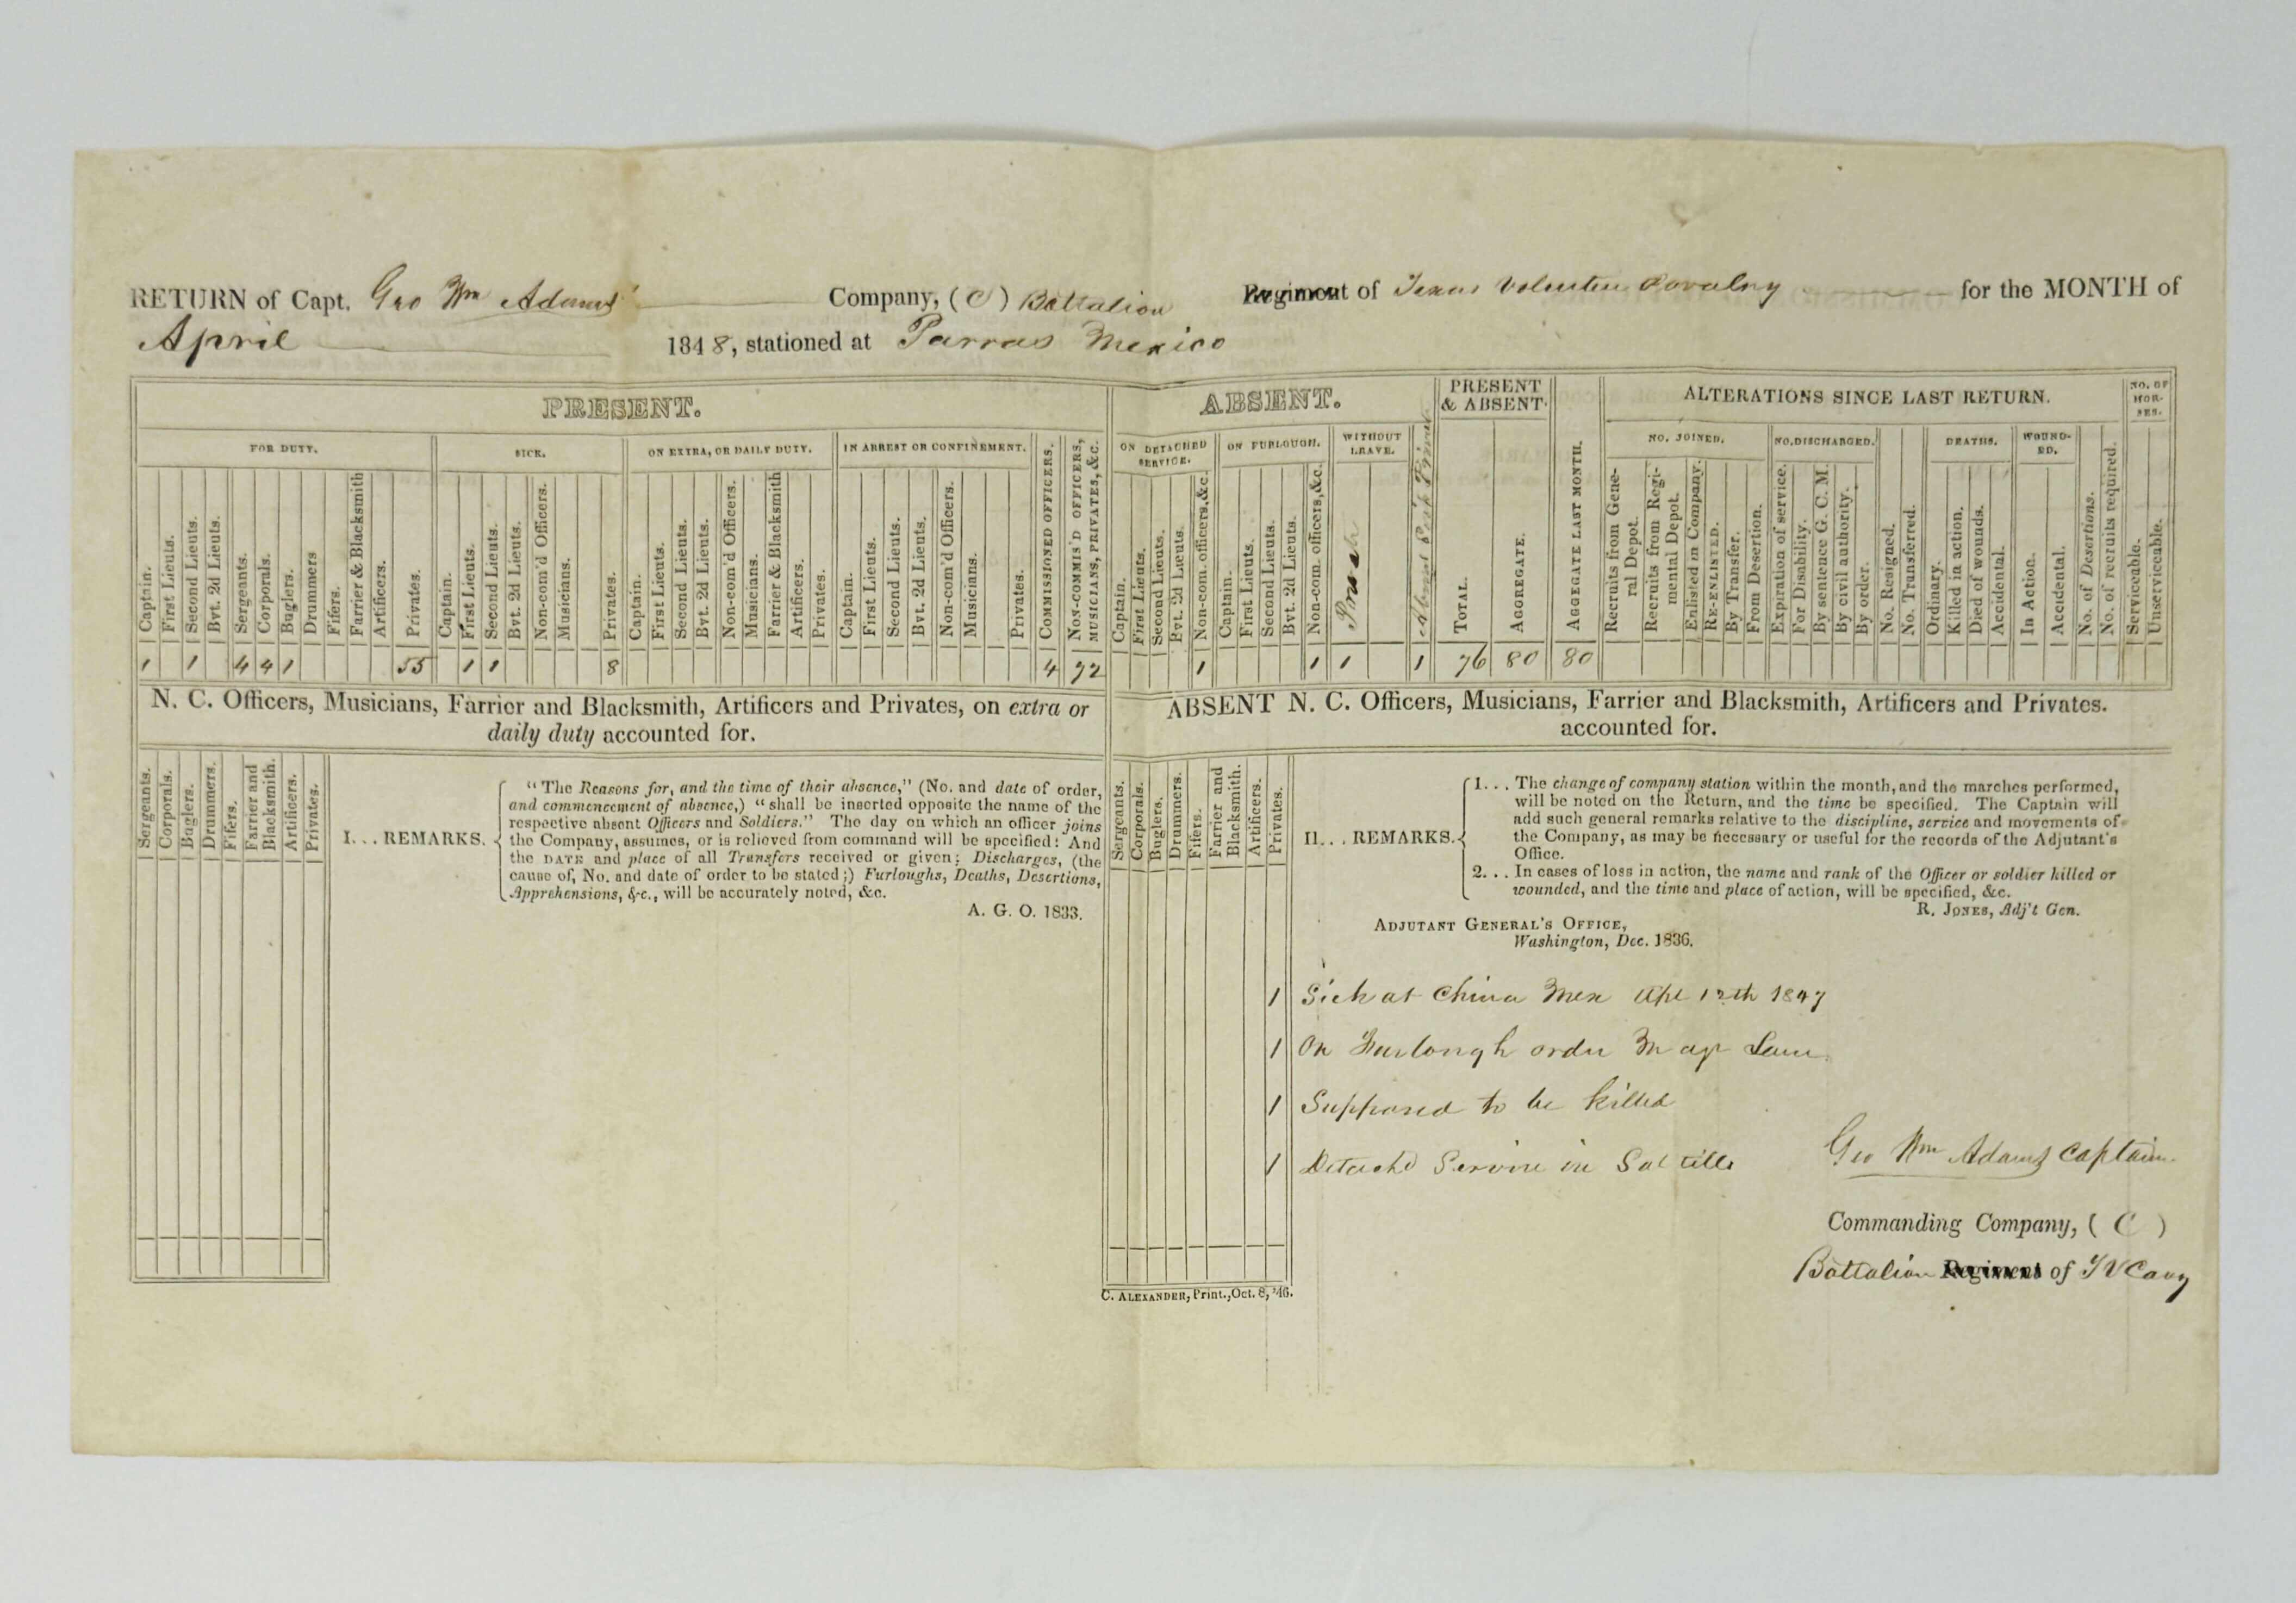 RETURN of Capt. Geo Wm Adams' Company, (C) Battalion Regiment of Texas Volunteer Cavalry for the MONTH of
April 1848, stationed at Parras Mexico
PRESENT. ABSENT. PRESENT & ABSENT. AGGREGATE LAST MONTH. ALTERATIONS SINCE LAST RETURN. NO. OF HOR-SES.
FOR DUTY. SICK. ON EXTRA, OR DAILY DUTY. IN ARREST OR CONFINEMENT. COMMISSIONED OFFICERS. NON-COMMIS'D OFFICERS, MUSICIANS, PRIVATES, &C. ON DETACHED SERVICE. ON FURLOUGH. WITHOUT LEAVE. NO. JOINED. NO. DISCHARGED. DEATHS. WOUND-ED.
Captain. First Lieuts. Second Lieuts. Bvt. 2d Lieuts. Sergeants. Corporals. Buglers. Drummers Fifers. Farrier & Blacksmith Artificers. Privates.
Captain. First Lieuts. Second Lieuts. Bvt. 2d Lieuts. Non-com'd Officers. Musicians. Privates.
Captain. First Lieuts. Second Lieuts. Bvt. 2d Lieuts. Non-com'd Officers. Musicians. Farrier & Blacksmith Artificers. Privates.
Captain. First Lieuts. Second Lieuts. Bvt. 2d Lieuts. Non-com'd Officers. Musicians. Privates.
Captain. First Lieuts. Second Lieuts. Bvt. 2d Lieuts. Non-com. officers, &c.
Captain. First Lieuts. Second Lieuts. Bvt. 2d Lieuts. Non-com. officers, &c.
Absent Sick Private
TOTAL. AGGREGATE.
Recruits from Gene-ral Depot. Recruits from Regi-mental Depot. Enlisted in Company. RE-ENLISTED. By Transfer. From Desertion.
Expiration of service. For Disability. By sentence G. C. M. By civil authority. By order. No. Resigned. No. Transferred.
Ordinary. Killed in action. Died of wounds. Accidental. In Action. Accidental. No. of Desertions. No. of recruits required. Serviceable. Unserviceable.
1 1 4 4 1 55 1 1 8 4 72 1 1 1 1 76 80 80
N. C. Officers, Musicians, Farrier and Blacksmith, Artificers and Privates, on extra or
daily duty accounted for.
ABSENT N. C. Officers, Musicians, Farrier and Blacksmith, Artificers and Privates.
accounted for.
Sergeants. Corporals. Buglers. Drummers. Fifers. Farrier and Blacksmith. Artificers. Privates.
I... REMARKS.
"The Reasons for, and the time of their absence," (No. and date of order,
and commencement of absence,) "shall be inserted opposite the name of the
respective absent Officers and Soldiers." The day on which an officer joins
the Company, assumes, or is relieved from command will be specified: And
the DATE and place of all Transfers received or given; Discharges, (the
cause of, No. and date of order to be stated;) Furloughs, Deaths, Desertions,
Apprehensions, &c., will be accurately noted, &c.
A. G. O. 1833.
Sergeants. Corporals. Buglers. Drummers. Fifers. Farrier and Blacksmith. Artificers. Privates.
II... REMARKS.
1... The change of company station within the month, and the marches performed,
will be noted on the Return, and the time be specified. The Captain will
add such general remarks relative to the discipline, service and movements of
the Company, as may be necessary or useful for the records of the Adjutant's
Office.
2... In cases of loss in action, the name and rank of the Officer or soldier killed or
wounded, and the time and place of action, will be specified, &c.
R. JONES, Adj't Gen.
ADJUTANT GENERAL'S OFFICE,
Washington, Dec. 1836.
1 Sick at China Mex Apl 12th 1847
1 On Furlongh order Maj Lane
1 Supposed to be killed
1 Detachd Service in Saltillo
Geo Wm Adams Captain
Commanding Company, (C)
Battalion Regiment of TV Cavy
C. ALEXANDER, Print., Oct. 8, '46.